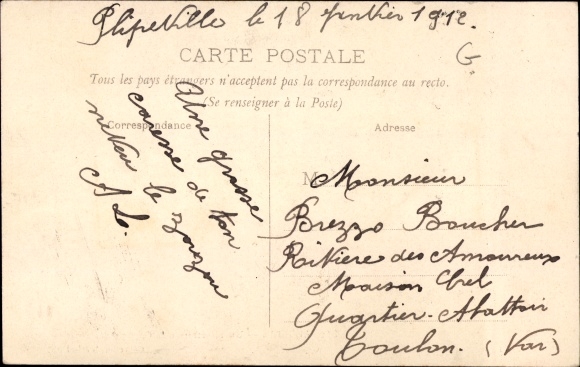 Plipeville le 18 Janvier 1912.
G
CARTE POSTALE
Tous les pays étrangers n'acceptent pas la correspondance au recto.
(Se renseigner à la Poste)
Correspondance
Adresse
Une grosse
caresse de ton
neveu le zouzou
A L.
M
Monsieur
Brezzo Boucher
Rivière des Amoureux
Maison Abel
Quartier Abattoir
Toulon. (Var)